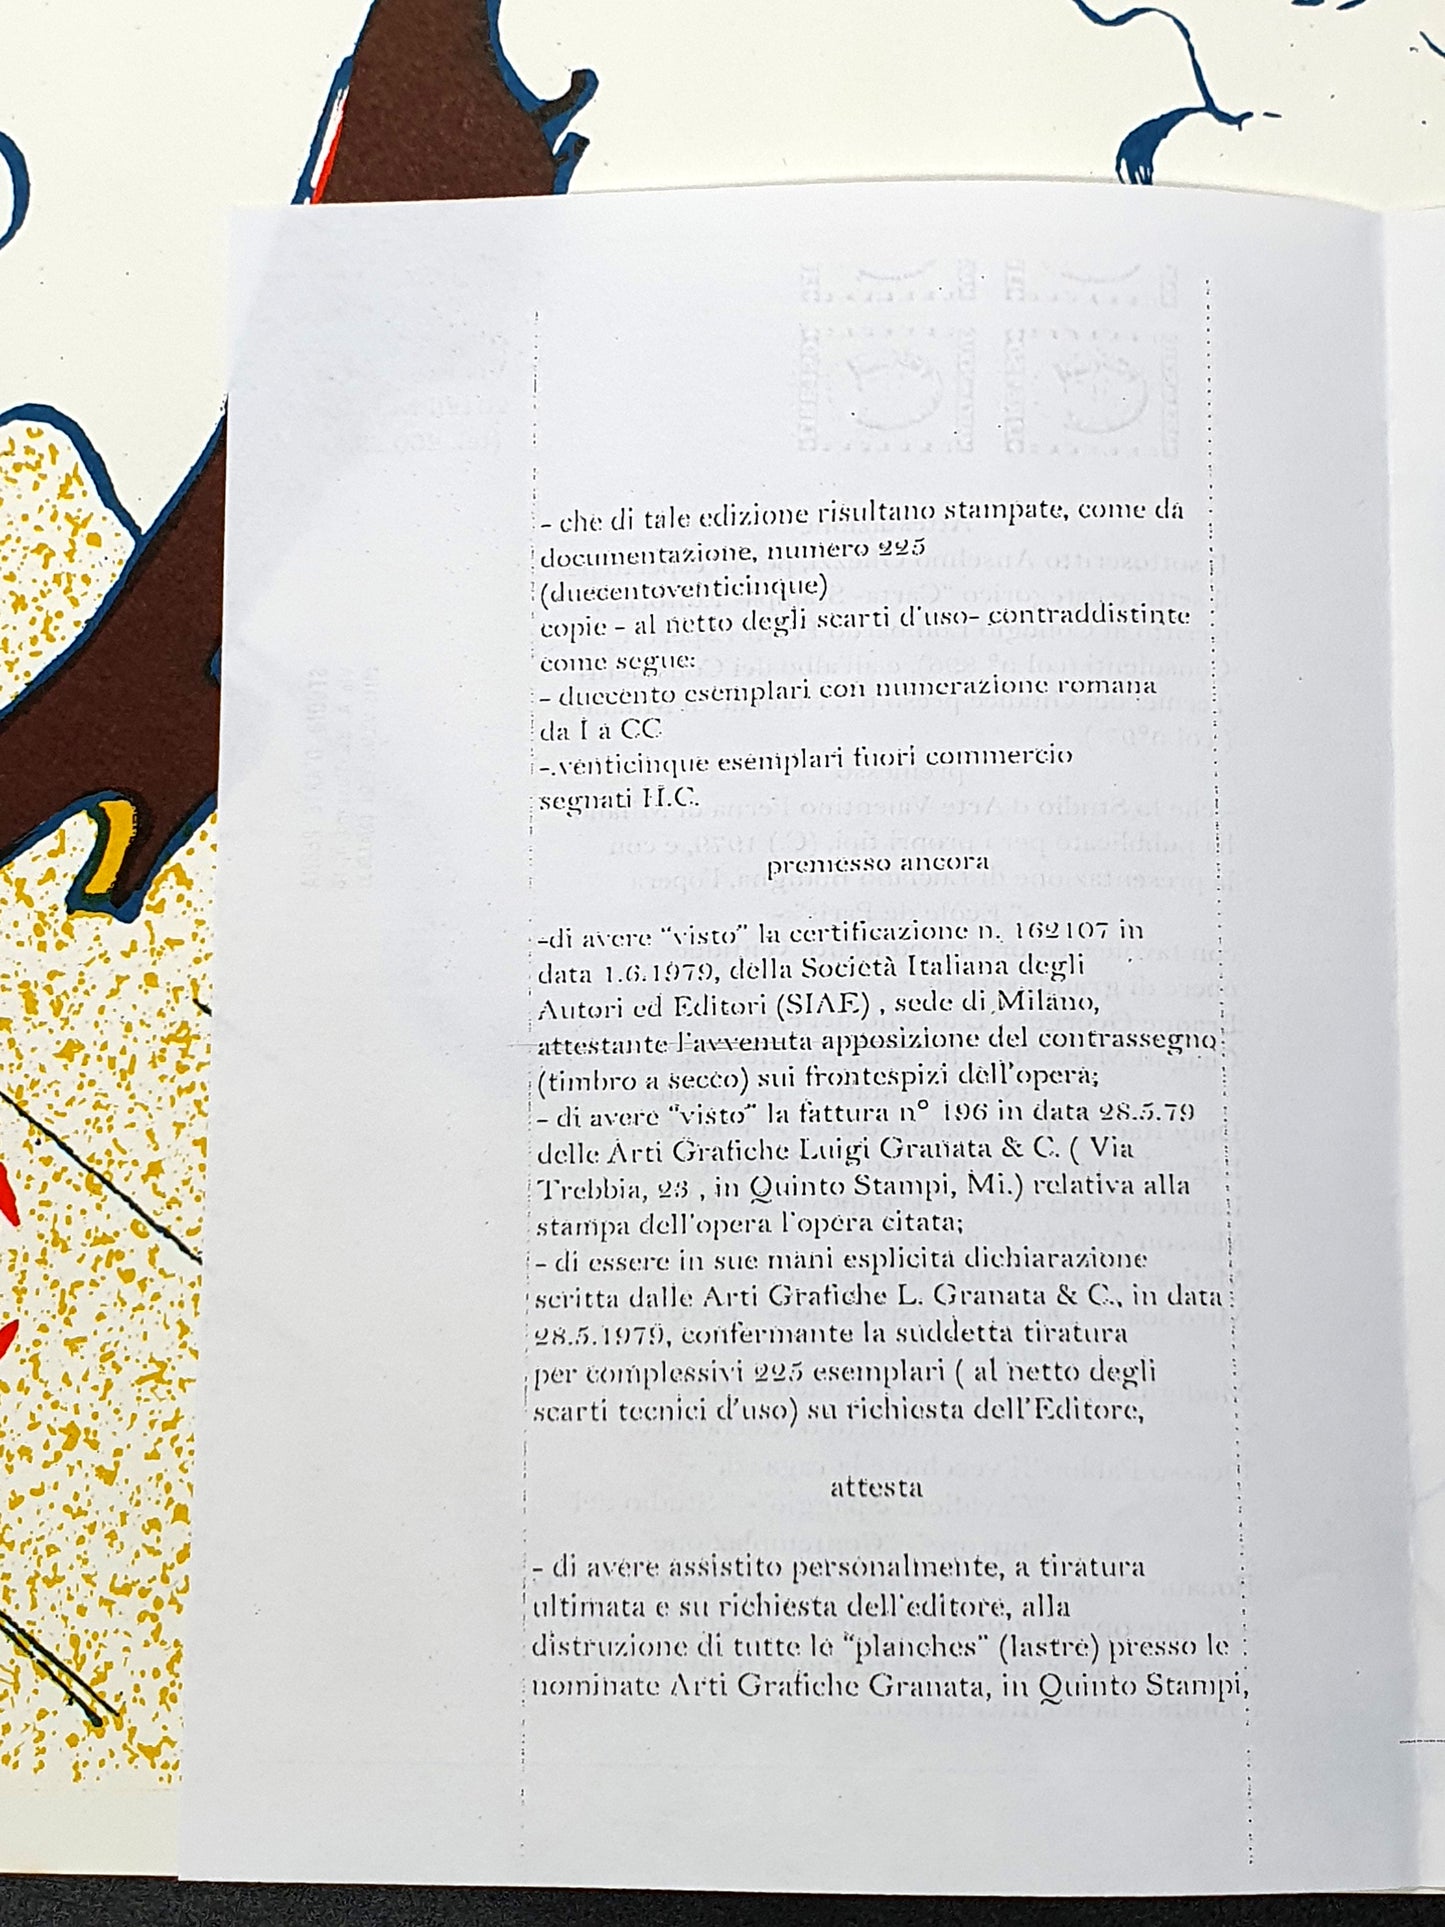 - che di tale edizione risultano stampate, come da
documentazione, numero 225
(duecentoventicinque)
copie - al netto degli scarti d'uso- contraddistinte
come segue:
- duecento esemplari con numerazione romana
da I a CC
- venticinque esemplari fuori commercio
segnati H.C.
premesso ancora
-di avere "visto" la certificazione n. 162107 in
data 1.6.1979, della Società Italiana degli
Autori ed Editori (SIAE) , sede di Milano,
attestante l'avvenuta apposizione del contrassegno
(timbro a secco) sui frontespizi dell'opera;
- di avere "visto" la fattura n° 196 in data 28.5.79
delle Arti Grafiche Luigi Granata & C. ( Via
Trebbia, 23 , in Quinto Stampi, Mi.) relativa alla
stampa dell'opera l'opera citata;
- di essere in sue mani esplicita dichiarazione
scritta dalle Arti Grafiche L. Granata & C., in data
28.5.1979, confermante la suddetta tiratura
per complessivi 225 esemplari ( al netto degli
scarti tecnici d'uso) su richiesta dell'Editore,
attesta
- di avere assistito personalmente, a tiratura
ultimata e su richiesta dell'editore, alla
distruzione di tutte le "planches" (lastre) presso le
nominate Arti Grafiche Granata, in Quinto Stampi,